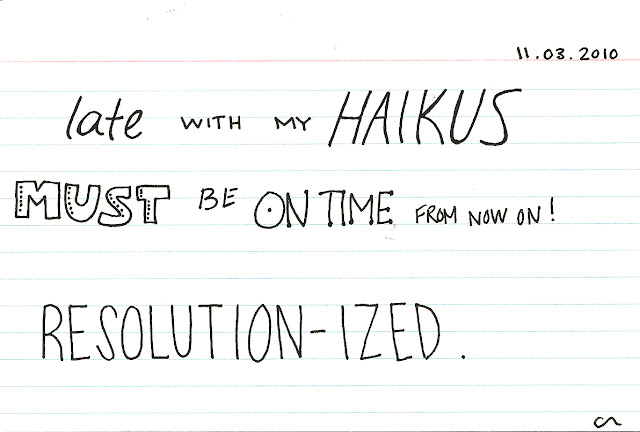 11.03.2010
late WITH MY HAIKUS
MUST BE ON TIME FROM NOW ON!
RESOLUTION-IZED.